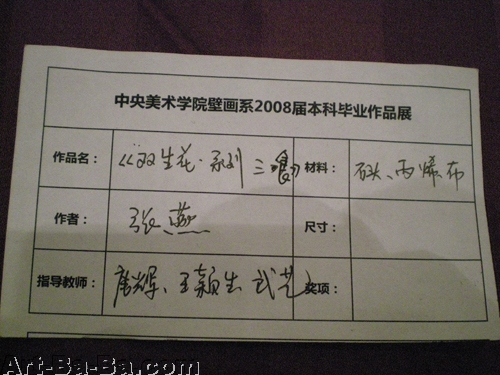 中央美术学院壁画系2008届本科毕业作品展
作品名： 《双生花·系列 三》 材料： 丙烯、布
作者： 张燕 尺寸：
指导教师： 唐晖、王颖生 武艺 奖项：
Art-Ba-Ba.com